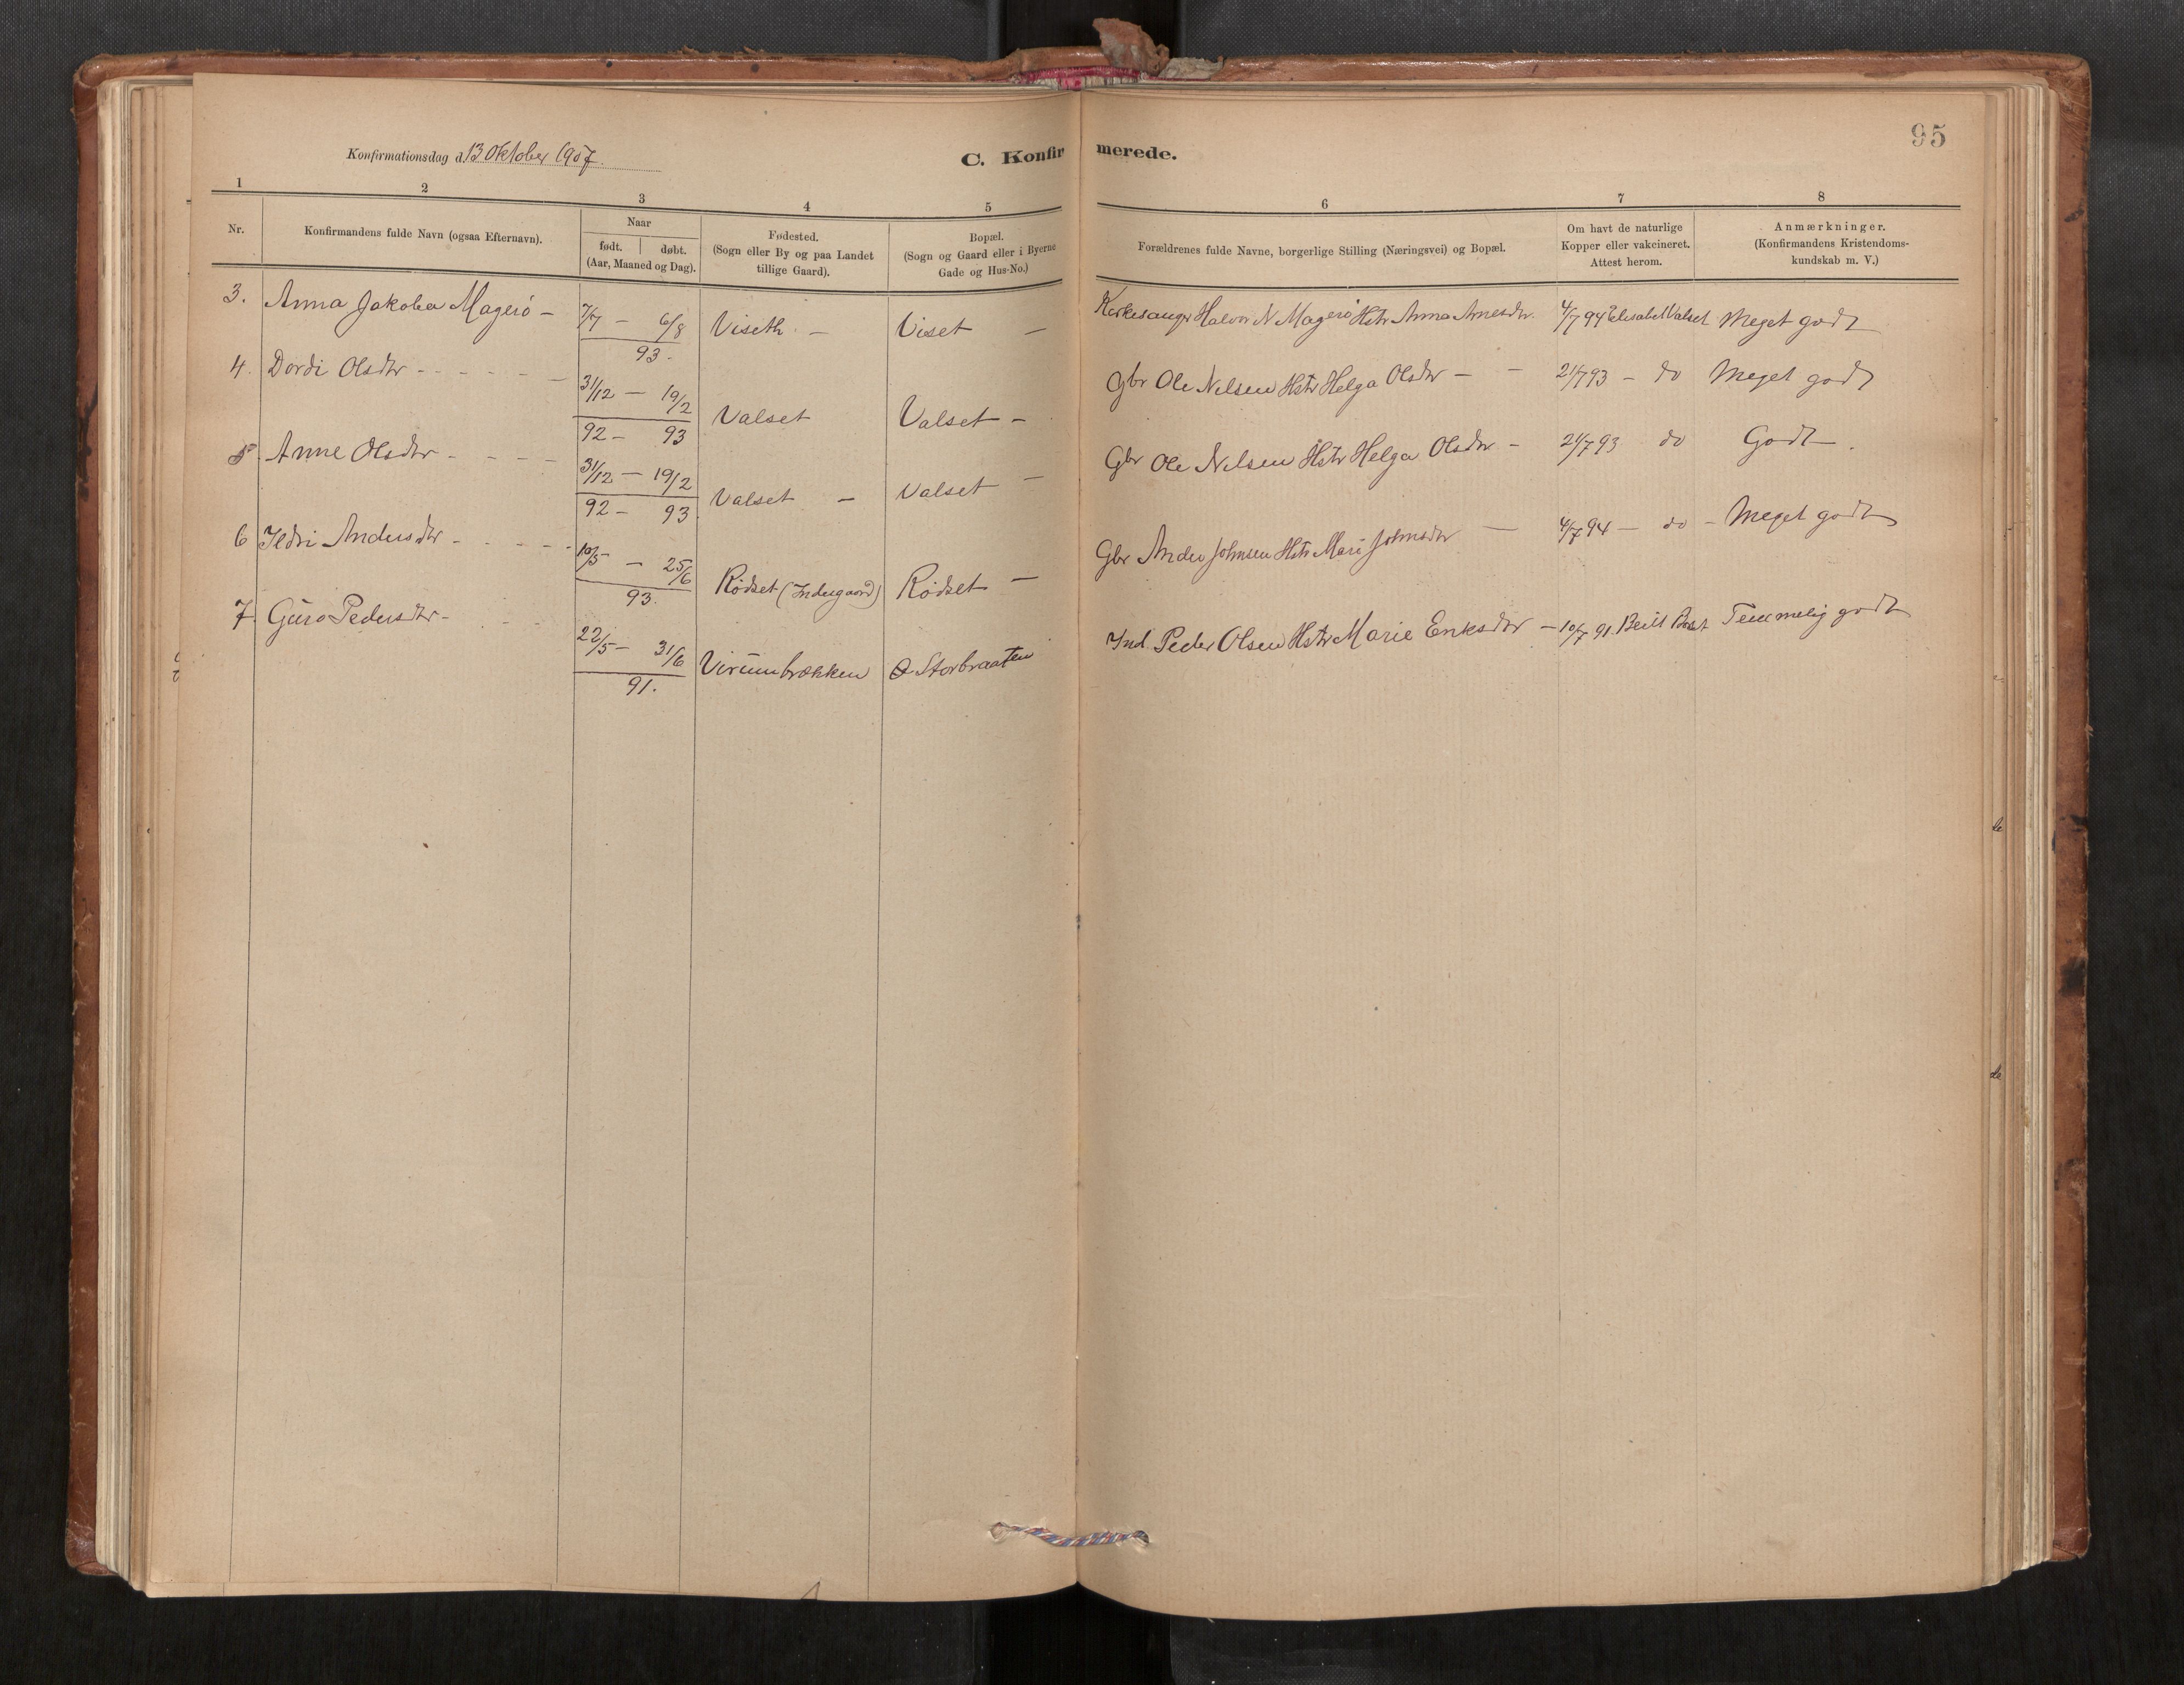 95
Konfirmationsdag d. 13 Oktober 1907.
C. Konfirmerede.
1 2 3 4 5 6 7 8
Nr.
Konfirmandens fulde Navn (ogsaa Efternavn).
Naar
født. døbt.
(Aar, Maaned og Dag).
Fødested.
(Sogn eller By og paa Landet
tillige Gaard).
Bopæl.
(Sogn og Gaard eller i Byerne
Gade og Hus-No.)
Forældrenes fulde Navne, borgerlige Stilling (Næringsvei) og Bopæl.
Om havt de naturlige
Kopper eller vakcineret.
Attest herom.
Anmærkninger.
(Konfirmandens Kristendoms-
kundskab m. V.)
3. Anna Jakoba Magerö – 7/7 – 6/8 93. Viseth – Viset – Kirkesanger Halvor N Magerö Hstr Anna Arnesdtr. 4/7 94 Elisabet Valset Meget godt
4. Dordi Olsdtr - - - - - 31/12 92 – 19/2 93 Valset Valset – Gbr Ole Nilsen Hstr Helga Olsdtr – – 21/7 93 – do Meget godt
5. Anne Olsdtr - - - - 31/12 92 – 19/2 93 Valset – Valset – Gbr Ole Nilsen Hstr Helga Olsdtr – 21/7 93 do Godt.
6 Ildri Andersdtr - - - - - 10/5 – 25/6 93. Rödset (Indergaard) Rödset – Gbr Anders Johnsen Hstr Mari Johnsdtr – 4/7 94 – do – Meget godt
7. Guro Pedersdtr - - - 22/5 – 31/6 91. Virumbrækken Storbraaten Ind. Peder Olsen Hstr Marie Eriksdtr – 10/7 91. Temmelig godt